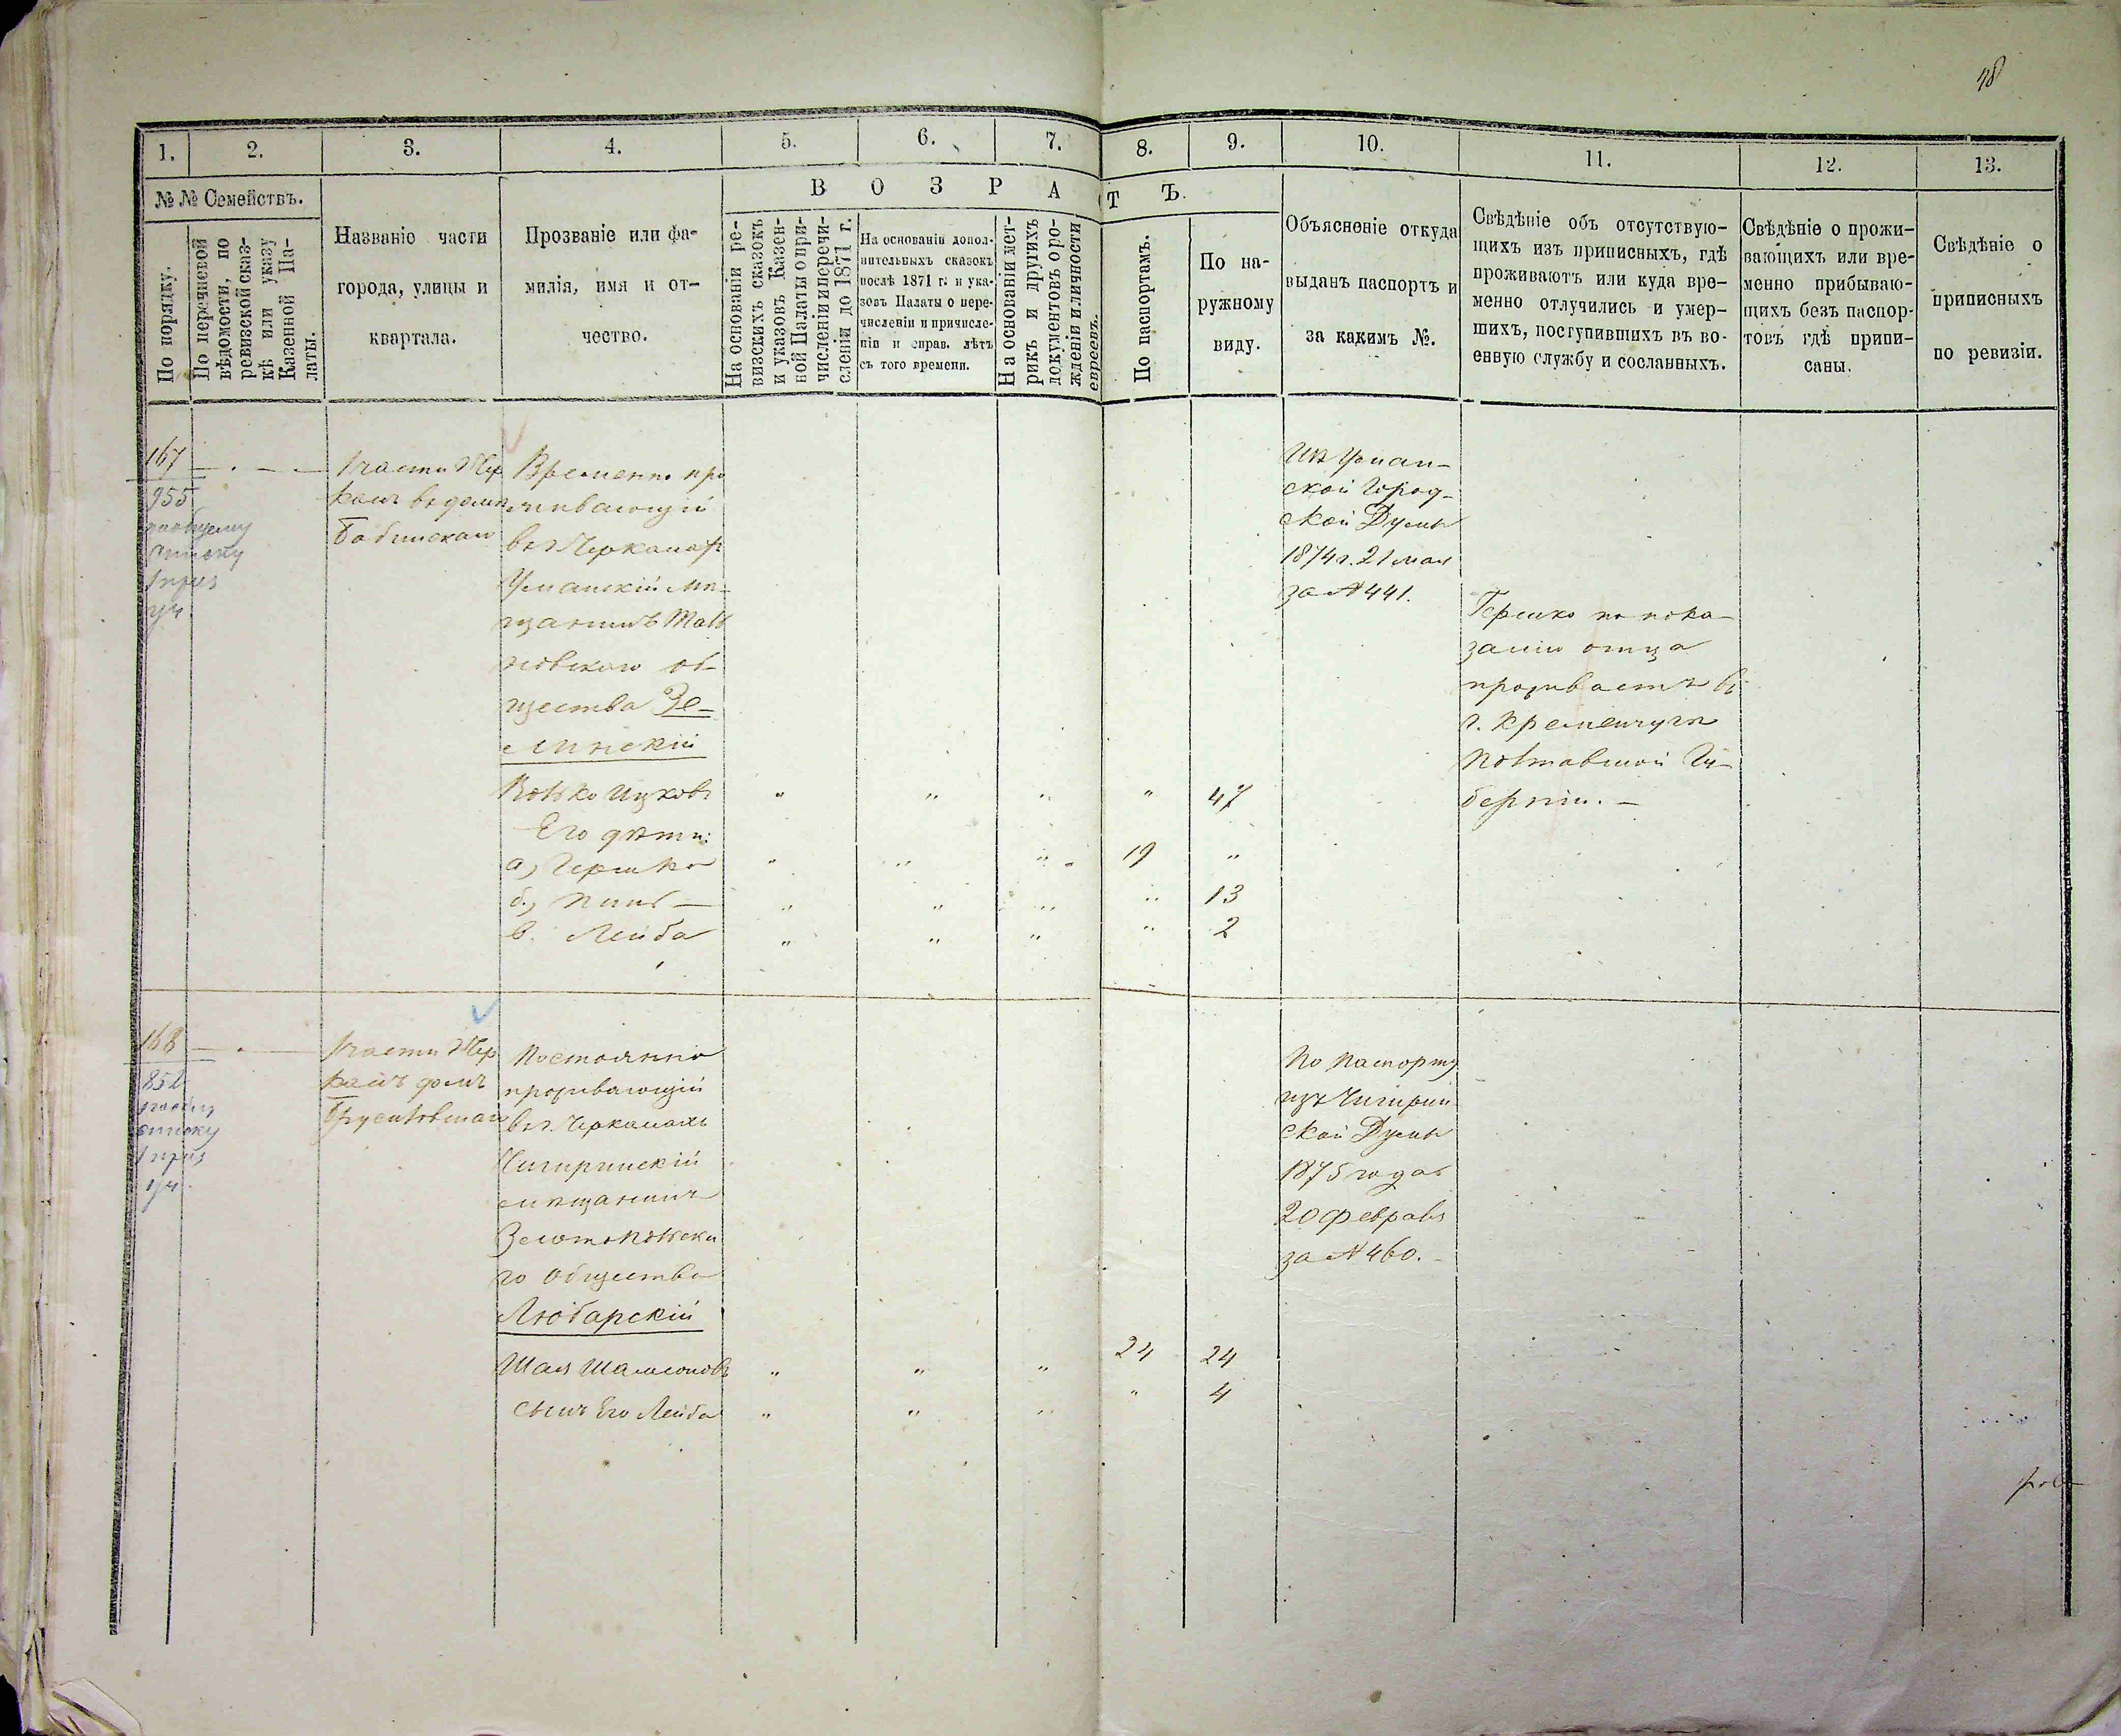 48
1. 2. 3. 4. 5. 6. 7. 8. 9. 10. 11. 12. 13.
№№ Семействъ.
В О З Р А Т Ъ.
По порядку.
По перечневой
вѣдомости, по
ревизской сказ-
кѣ или указу
Казенной Па-
латы.
Названіе части
города, улицы и
квартала.
Прозваніе или фа-
милія, имя и от-
чество.
На основаніи ре-
визскихъ сказокъ
и указовъ Казен-
ной Палаты о при-
численіи и перечи-
сленіи до 1871 г.
На основаніи допол-
нительныхъ сказокъ
послѣ 1871 г. и ука-
зовъ Палаты о пере-
численіи и причисле-
ніи и справ. лѣтъ
съ того времени.
На основаніи мет-
рикъ и другихъ
документовъ о ро-
жденіи и личности
евреевъ.
По паспортамъ.
По на-
ружному
виду.
Объясненіе откуда
выданъ паспортъ и
за какимъ №.
Свѣдѣніе объ отсутствую-
щихъ изъ приписныхъ, гдѣ
проживаютъ или куда вре-
менно отлучились и умер-
шихъ, поступившихъ въ во-
енную службу и сосланныхъ.
Свѣдѣніе о прожи-
вающихъ или вре-
менно прибываю-
щихъ безъ паспор-
товъ гдѣ припи-
саны.
Свѣдѣніе о
приписныхъ
по ревизіи.
167
955
по общему
списку
1 части Чер
касъ въ домѣ
Временно про
живающій
въ г. Черкасахъ
Уманскій мѣ-
щанинъ
об-
щества Зе-
линскій
Волько Ицковъ
Его дѣти:
а, Гершко
б, Пинь
в. Лейба
" " " " 47
" " " 19 "
" " " " 13
" " " " 2
Изъ Уман-
ской Город-
ской Думы
1874 г. 21 мая
за № 441.
Гершко по пока-
занію отца
проживаетъ въ
г. Кременчугѣ
Полтавской Гу-
берніи. —
168
852
списку
1 части Чер
касъ домъ
Постоянно
проживающій
въ г. Черкасахъ
Чигиринскій
мѣщанинъ
Златопольска
го общества
Любарскій
Шая Шамсоновъ
сынъ Его Лейба
" " " 24 24
" " " " 4
По паспорту
изъ Чигирин
ской Думы
1875 года
20 февраля
за № 460. -